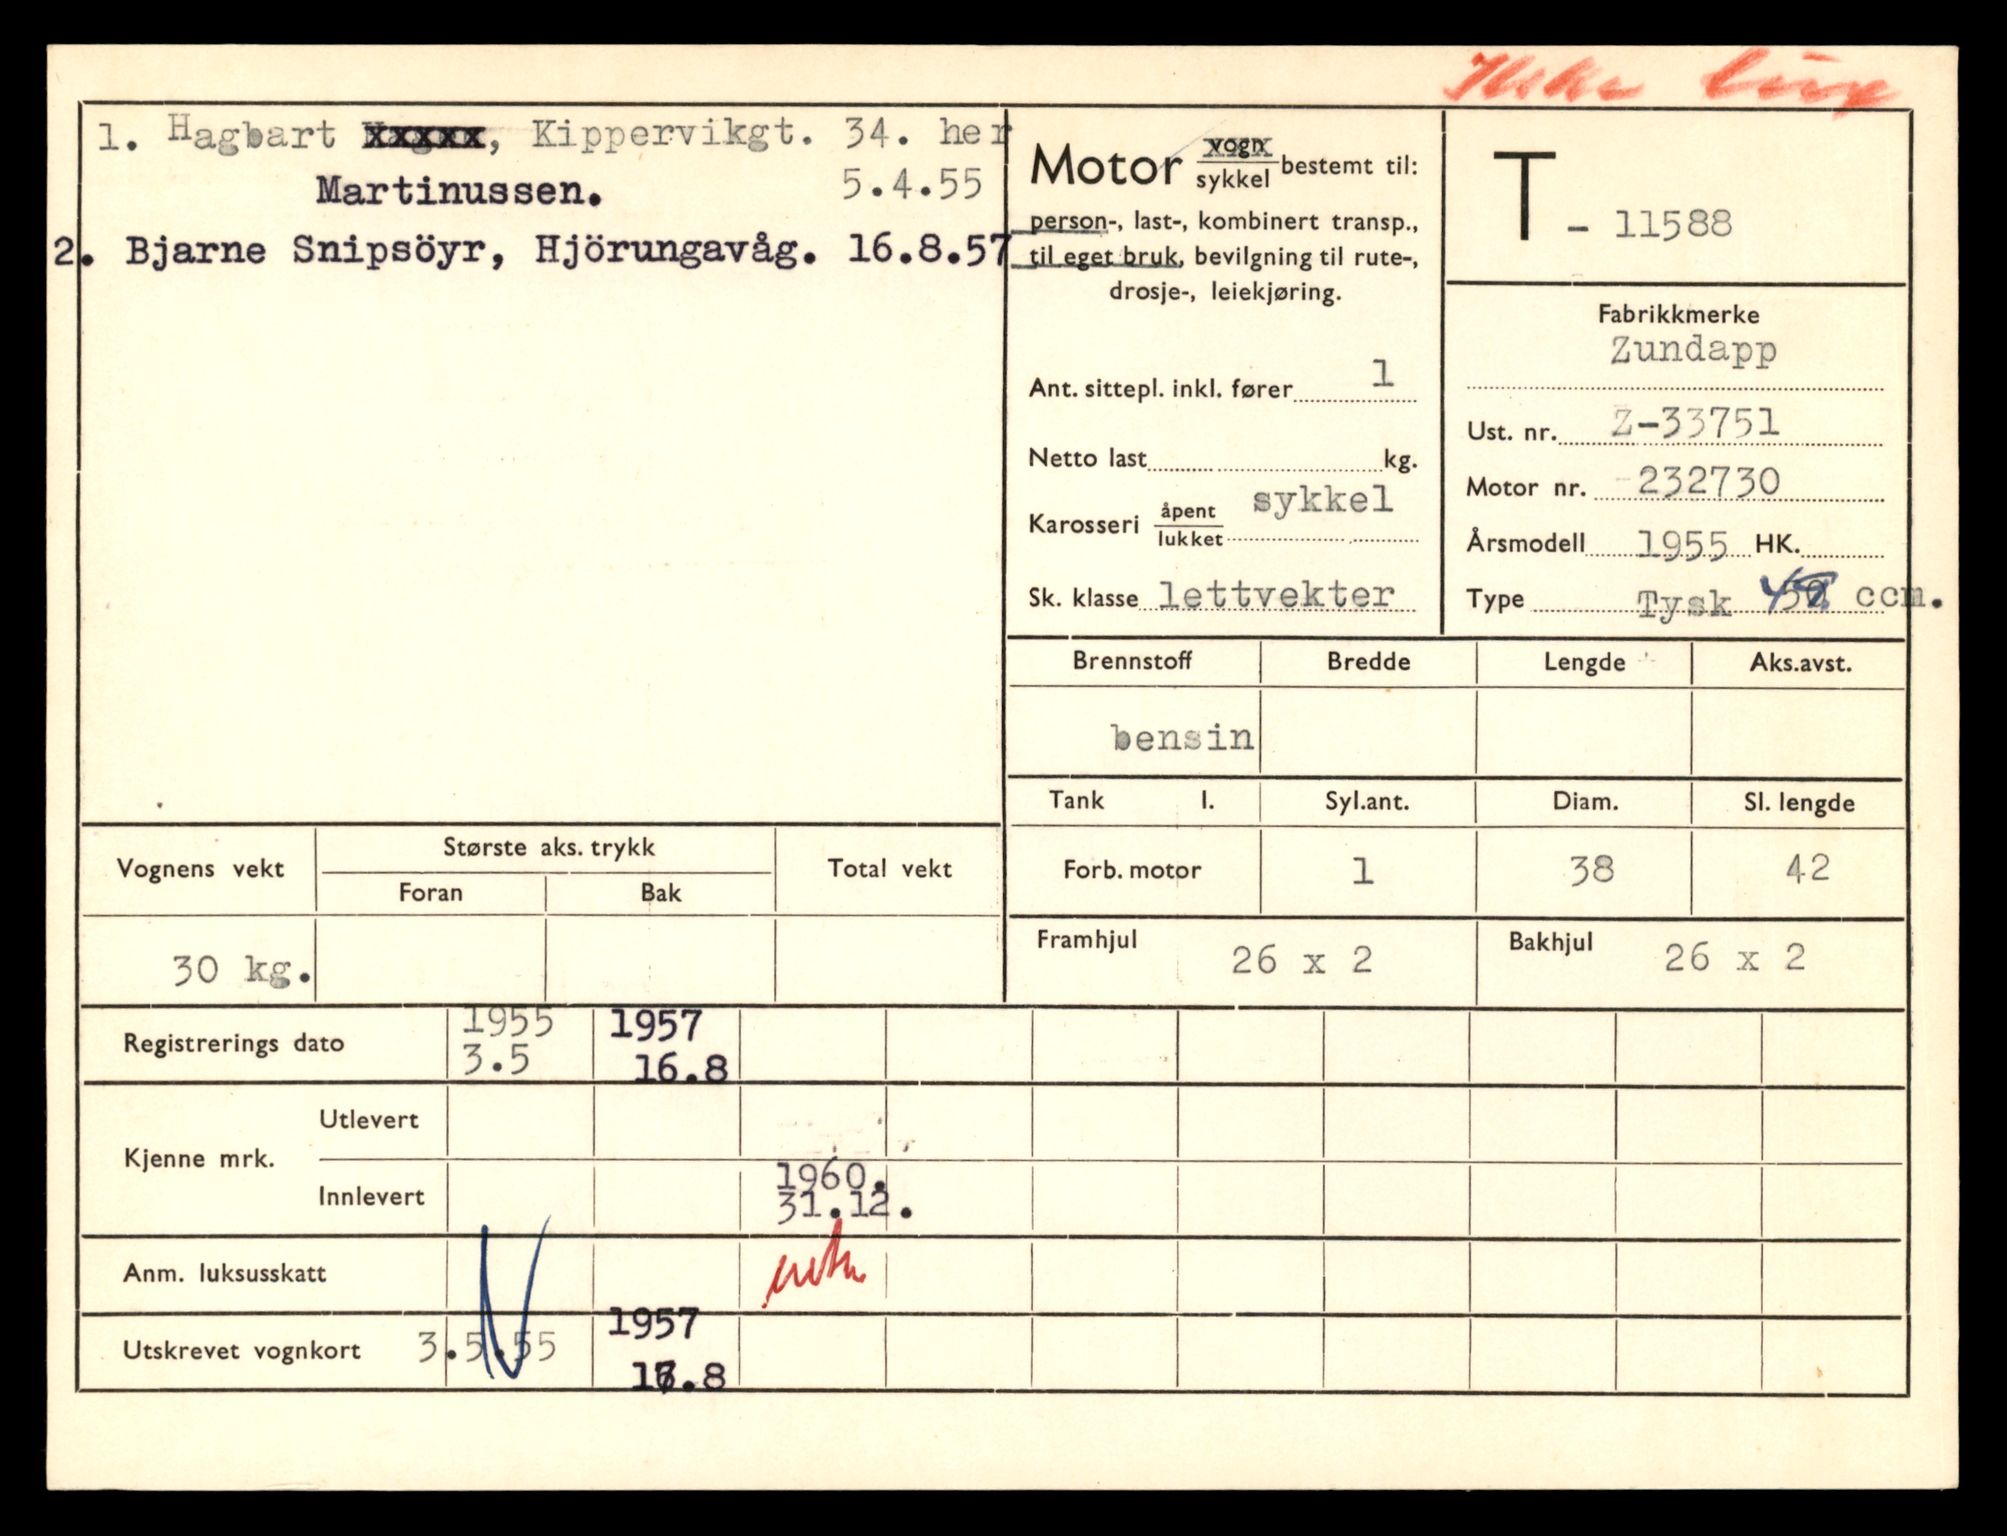 1. Hagbart xxxxx, Kippervikgt. 34. her
Martinussen. 5.4.55
2. Bjarne Snipsöyr, Hjörungavåg. 16.8.57
Motor vogn
sykkel bestemt til:
person-, last-, kombinert transp.,
til eget bruk, bevilgning til rute-,
drosje-, leiekjøring.
Ant. sittepl. inkl. fører 1
Netto last kg.
Karosseri åpent
lukket sykkel
Sk. klasse lettvekter
T - 11588
Fabrikkmerke
Zundapp
Ust. nr. Z-33751
Motor nr. 232730
Årsmodell 1955 HK.
Type Tysk ccm.
Brennstoff Bredde Lengde Aks.avst.
bensin
Tank l. Syl.ant. Diam. Sl. lengde
Forb. motor 1 38 42
Framhjul 26 x 2 Bakhjul 26 x 2
Vognens vekt Største aks. trykk Total vekt
Foran Bak
30 kg.
Registrerings dato 1955 1957
3.5 16.8
Kjenne mrk. Utlevert
Innlevert 1960.
31.12.
Anm. luksusskatt
Utskrevet vognkort 3.5.55 1957
16.8